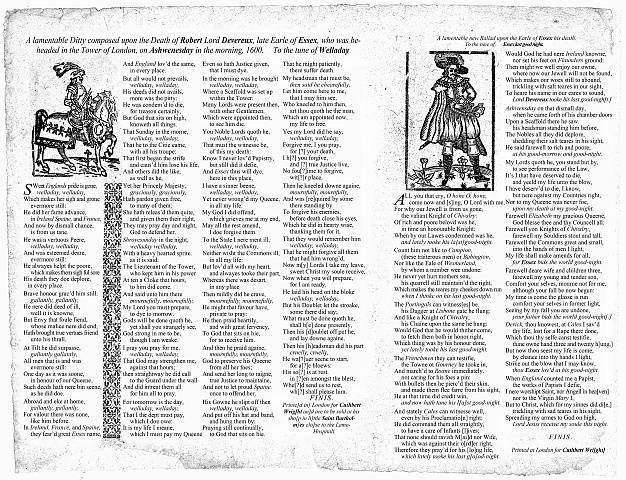 A lamentable Ditty composed upon the Death of Robert Lord Devereux, late Earle of Essex, who was be-
headed in the Tower of London, on Ashwenesday in the morning, 1600. To the tune of Welladay
Sweet Englands pride is gone,
welladay, welladay,
Which makes her sigh and grone
evermore still:
He did her fame advance,
in Ireland, Spaine, and France,
And now by dismall chance,
is from us tane.
He was a vertuous Peere,
welladay, welladay,
And was esteemed deere,
evermore still:
He alwayes helpt the poore,
which makes them sigh full sore
His death they doe deplore,
in every place.
Brave honour grac'd him still,
gallantly, gallantly,
He nere did deed of ill,
well it is knowne,
But Envy that foule fiend,
whose malice nere did end,
Hath brought true vertues friend
unto his thrall.
At Tilt he did surpasse,
gallantly, gallantly,
All men that is and was
evermore still:
One day as it was seene,
in honour of our Queene,
Such deeds hath nere bin seene
as he did doe.
Abroad and eke at home,
gallantly, gallantly,
For valour there was none,
like him before,
In Ireland, France, and Spaine,
they fear'd great Essex name,
And England lov'd the same,
in every place.
But all would not prevaile,
welladay, welladay,
His deeds did not availe,
more was the pitty:
He was condem'd to die,
for treason certainly,
But God that sits on high,
knoweth all things.
That Sunday in the morne,
welladay, welladay,
That he to the Citie came,
with all his troupe:
That first began the strife
and caus'd him lose his life,
And others did the like,
as well as he.
Yet her Princely Majesty,
graciously, graciously,
Hath pardon given free,
to many of them:
She hath releas'd them quite
and given them their right,
They may pray day and night,
God to defend her.
Shrovetuesday in the night,
welladay, welladay,
With a heavy hearted sprite,
as it is said:
The Lieutenant of the Tower,
who kept him in his power
At ten a Clocke that hours,
to him did come.
And said unto him there
mournefully, mournefully,
My Lord you must prepare,
to dye to morrow.
Gods will be done quoth he,
yet shall you strangely see,
God strong in me to be,
though I am weake.
I pray you pray for me,
welladay, welladay,
That God may strengthen me,
against that houre:
then straightway he did call
to the Guard under the wall
And did intreat them all
for him all to pray.
For tomorrow is the day,
welladay, welladay,
That I the dept must pay,
which I doe owe:
It is my life I meane,
which I must pay my Queene
Even so hath Justice given,
that I must die.
In the morning was he brought
welladay, welladay,
Where a Scaffold was set up
within the Tower:
Many Lords were present then,
with other Gentlemen,
Which were appointed then,
to see him die.
You Noble Lords quoth he,
welladay, welladay,
That must the witnesse be,
of this my death:
Know I never lov'd Papistry,
but still did it defie,
And Essex thus will die,
here in this place.
I have a sinner beene,
welladay, welladay,
Yet never wrong'd my Queene,
in all my life.
My God I did offend,
which grieves me at my end,
May all the rest amend,
I doe forgive them.
To the State I nere ment ill,
welladay, welladay,
Neither wisht the Commons ill,
in all my life:
But lov'd all with my heart,
and alwayes tooke their part,
Whereas there was desert,
in any place
Then mildly did he crave,
mournefully, mournefully,
He might that favour have,
private to pray:
He then praid heartily,
and with great fervency
To God that sits on hie,
for to receive him.
And then he praied againe,
mournefully, mournefully,
God to preserve his Queene
from all her foes;
And send her long to raigne,
true Justice to maintaine,
And not to let proud Spaine
once to offend her.
His Gowne he slipt off then
welladay, welladay,
And put off his hat and band,
and hung them by:
Praying still continually,
to God that sits on hie.
That he might patiently,
there suffer death.
My headsman must my be,
then said he chearefully,
Let him come here to me,
that I may him see,
Who kneeled to him then,
art thou quoth he the man,
Which art appointed now,
my life to free.
Yes my Lord did he say,
welladay, welladay,
Forgive me, I you pray,
for [?] your death,
I h[?] you forgive,
and [?] true Justice live,
No fou[?]ime to forgive,
wit[?] place.
Then he kneeled downe againe,
mournfully, mournfully,
And was [re]quired by some
there standing by
To forgive his enemies,
before death close his eyes,
Which he did in hearty wise,
thanking them for it.
That they would remember him
welladay, welladay,
That he might forgive all them
that had him wrong'd,
Now m[y] Lords I take my leave,
sweet Christ my soule receive,
Now when you will prepare,
for I am ready.
He laid his head on the bloke
welladay, welladay,
But his Doublet let the stroake,
some there did say.
What must be done quoth he,
shall b[e] done presently,
Then his [d]oublet off put he,
and lay downe againe,
Then his [h]eadsman did his part
cruelly, cruelly,
He wa[?]uer seene to start,
for a[?]e blowes:
His so[?] is at rest
in [?]en amongst the blest,
Whe[?]d send us to rest,
wh[?] shall please him.
FINIS.
Printe[d at] London for Cuthbert
Wright a[nd are to be sold at his
sho]p in little Saint Barthol-
m[e]s close to the Lame-
Hospitall.
A lamentable new Ballad upon the Earle of Essex his death.
To the tune of Essex last good night.
All you that cry, O hone O, hone,
come now and [s]ing, O Lord with me,
For why our Jewell is from us gone,
the valiant Knight of Chivalry:
Of rich and poore belov'd was he,
in time an honourable Knight:
When by our Lawes condemned was he,
and lately tooke his la[st]good-night.
Count him not like to Campion,
(these traiterous men) or Babington,
Nor like the Eale of Westmerland,
by whom a number were undone:
He never yet hurt mothers son,
his quarrell still maintain'd the right,
Which makes the teares my cheekes down run
when I thinke on his last good-night.
The Portingals can witnes[se] be,
his Dagger at Lisbone gate he flung:
And like a Knight of Chivalry,
his Chaine upon the same he hung:
Would God that he would thither come,
to fetch them both in honor right,
Which thing was by his honour done,
yet lately tooke his last good-night.
The Frenchmen they can testifie,
the Towne at Gourney he tooke in,
And march'd to Roane immediately,
not caring for his foes a pin:
With bullets then he pierc'd their skin,
and made them flee farre from his sight,
He at that time did credit win,
and now hath tane his [l]ast good-night.
And stately Cales can witnesse well,
even by his Proclamatio[n] right:
He did command them all straightly,
to have a care of Infants [l]ives;
That none should ravish M[ai]d nor Wife,
which was against their o[rd]er right,
Therefore they pray'd for his [lo]ng life,
which lately tooke his last g[o]od-night.
Would God he had nere Ireland knowne,
nor set his feet on Flaunders ground:
Then might we well enjoy our owne,
where now our Jewell will not be found,
Which makes our woes still to abound,
trickling with salt teares in our sight,
To heare his name in our eares to sound,
Lord Devereux tooke his last good-night[.]
Ashwensday on that dismall day,
when he came forth of his chamber doors
Upon a Scaffold there he saw,
his headsman standing him before,
The Nobles all they did deplore,
shedding their salt teares in his sight,
He said farewell to rich and poore,
at his good-morrow and good-night.
My Lords quoth he, you stand but by,
to see performance of the Law;
It's I that have deserved to die,
and yeeld my life unto the blow,
I have deserv'd to die, I know,
but nere against my Countries right,
Nor to my Queene was never fue,
upon my death at my good-night.
Farewell Elizabeth my gracious Queene,
God blesse thee and thy Councell all:
Farewell you Knights of Chivalry;
farewell my Souldiers stout and tall.
Farewell the Commons great and small,
into the hands of men I light.
My life shall make amends for all,
for Essex bids the world good-night
Farewell deare wife and children three,
farewell my young and tender son,
Comfort your selves, mourne not for me,
although your fall be now begun:
My time is come the glasse is run
comfort your selves in former light,
Seeing by my fall you are undone,
your father bids the world good-night.[?]
Derick, thou knowest, at Cales I sav'd
thy life, lost for a Rape there done,
Which thou thy selfe canst testifie,
thine owne hand three and twenty h[ung,]
But now thou seest my life is come,
by chance into thy hands I light,
Strike out the blow that I may know,
thou Essex lov'd at his good-night.
When England counted me a Papist,
the workes of Papists I defie,
I nere worship Saint, nor Angell in hea[ven]
nor to the Virgin Mary I,
But to Christ, which for my sinnes did di[e,]
trickling with sad teares in his sight,
Spreading my armes to God on high,
Lord Jesus receive my soule this night.
FINIS.
Printed at London for Cuthbert Wri[ght]